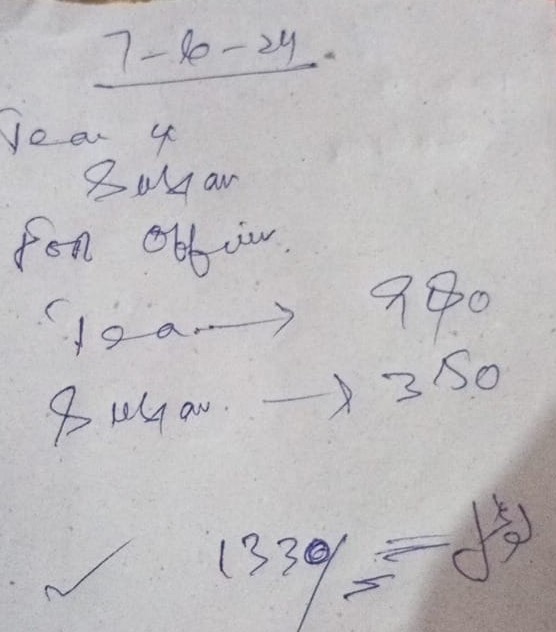 7-6-24
Tea &
Sugar
For Office
Tea → 980
Sugar → 350
1330/=